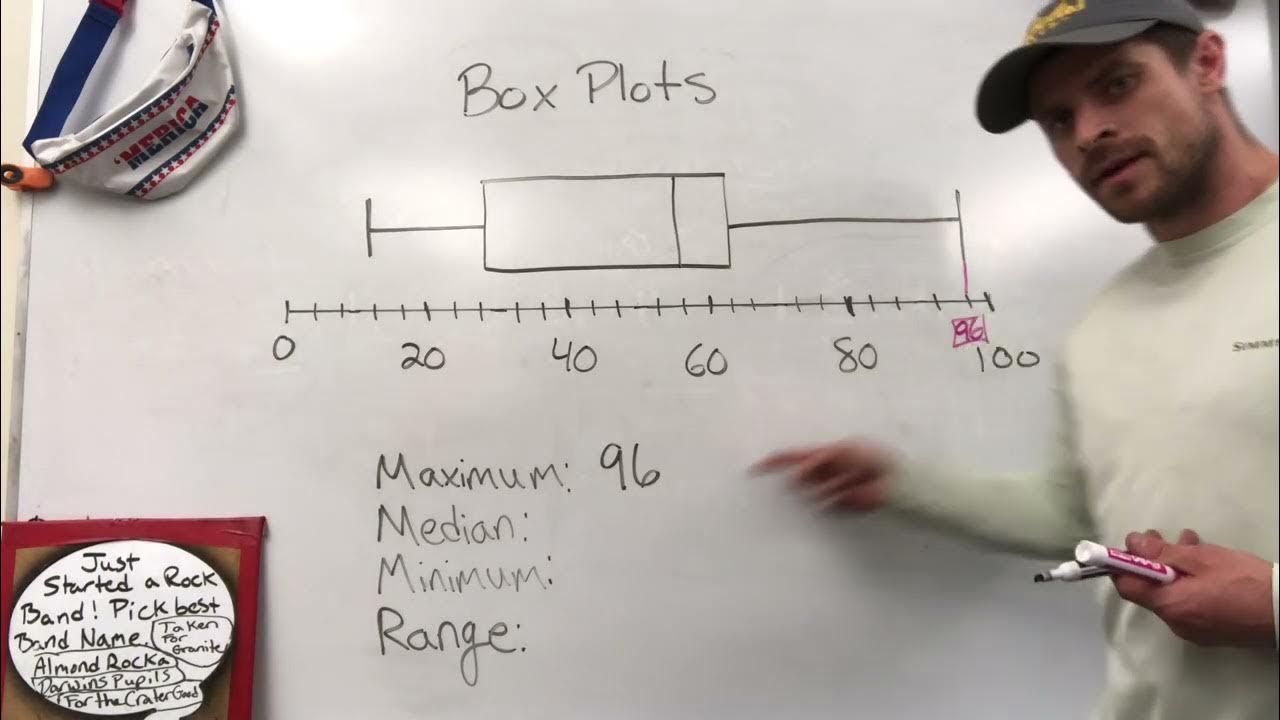 Box Plots
'MERICA
0 20 40 60 80 100
96
Maximum: 96
Median:
Minimum:
Range:
Just
Started a Rock
Band! Pick best
Band Name.
Taken
For
Granite
Almond Rocka
Darwins Pupils
For the Crater Good